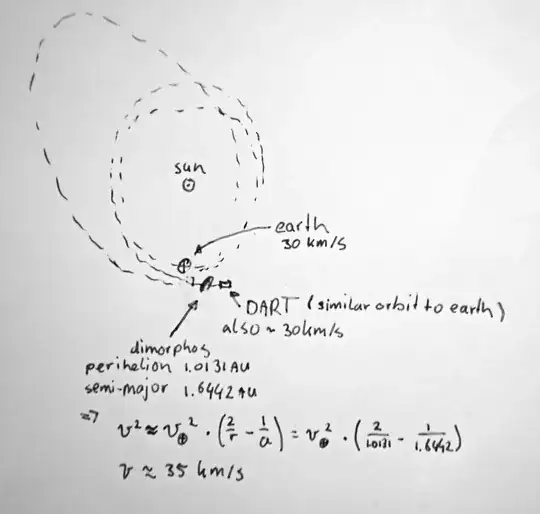 sun
☉
earth
30 km/s
⊕
DART (similar orbit to earth)
also ~ 30km/s
dimorphos
perihelion 1.0131 AU
semi-major 1.6442 AU
=> v² ≈ v⊕² · (2/r - 1/a) = v⊕² · (2/1.0131 - 1/1.6442)
v ≈ 35 km/s